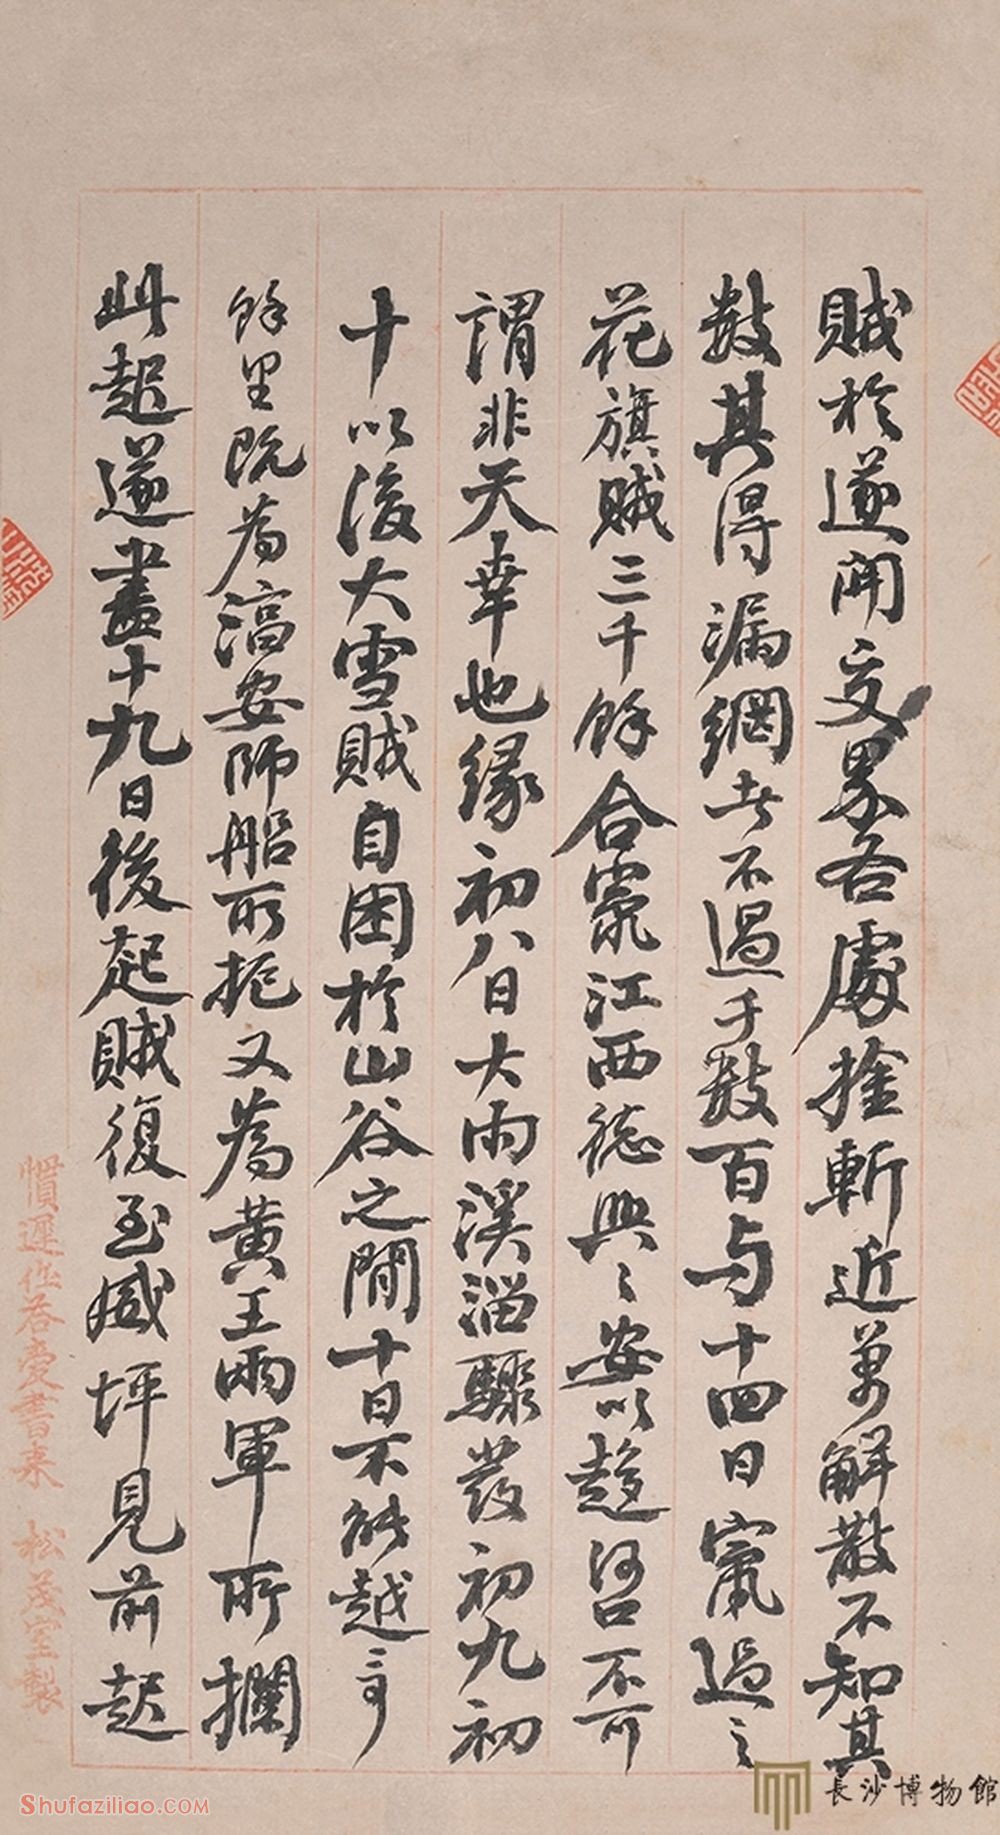 賊於遂開交界各處擒斬近萬解散不知其
數其得漏網者不過千數百与十四日竄過之
花旗賊三千餘合竄江西德興〻安以趨河口不可
謂非天幸也緣初八日大雨溪澑驟發初九初
十以後大雪賊自困於山谷之間十日不能越二百
餘里既為高安師船所扼又為黃王兩軍所攔
此起遂盡十九日後起賊復至臧坪見前起
慣遲作答愛書來 松茂室製
長沙博物館
Shufaziliao.COM